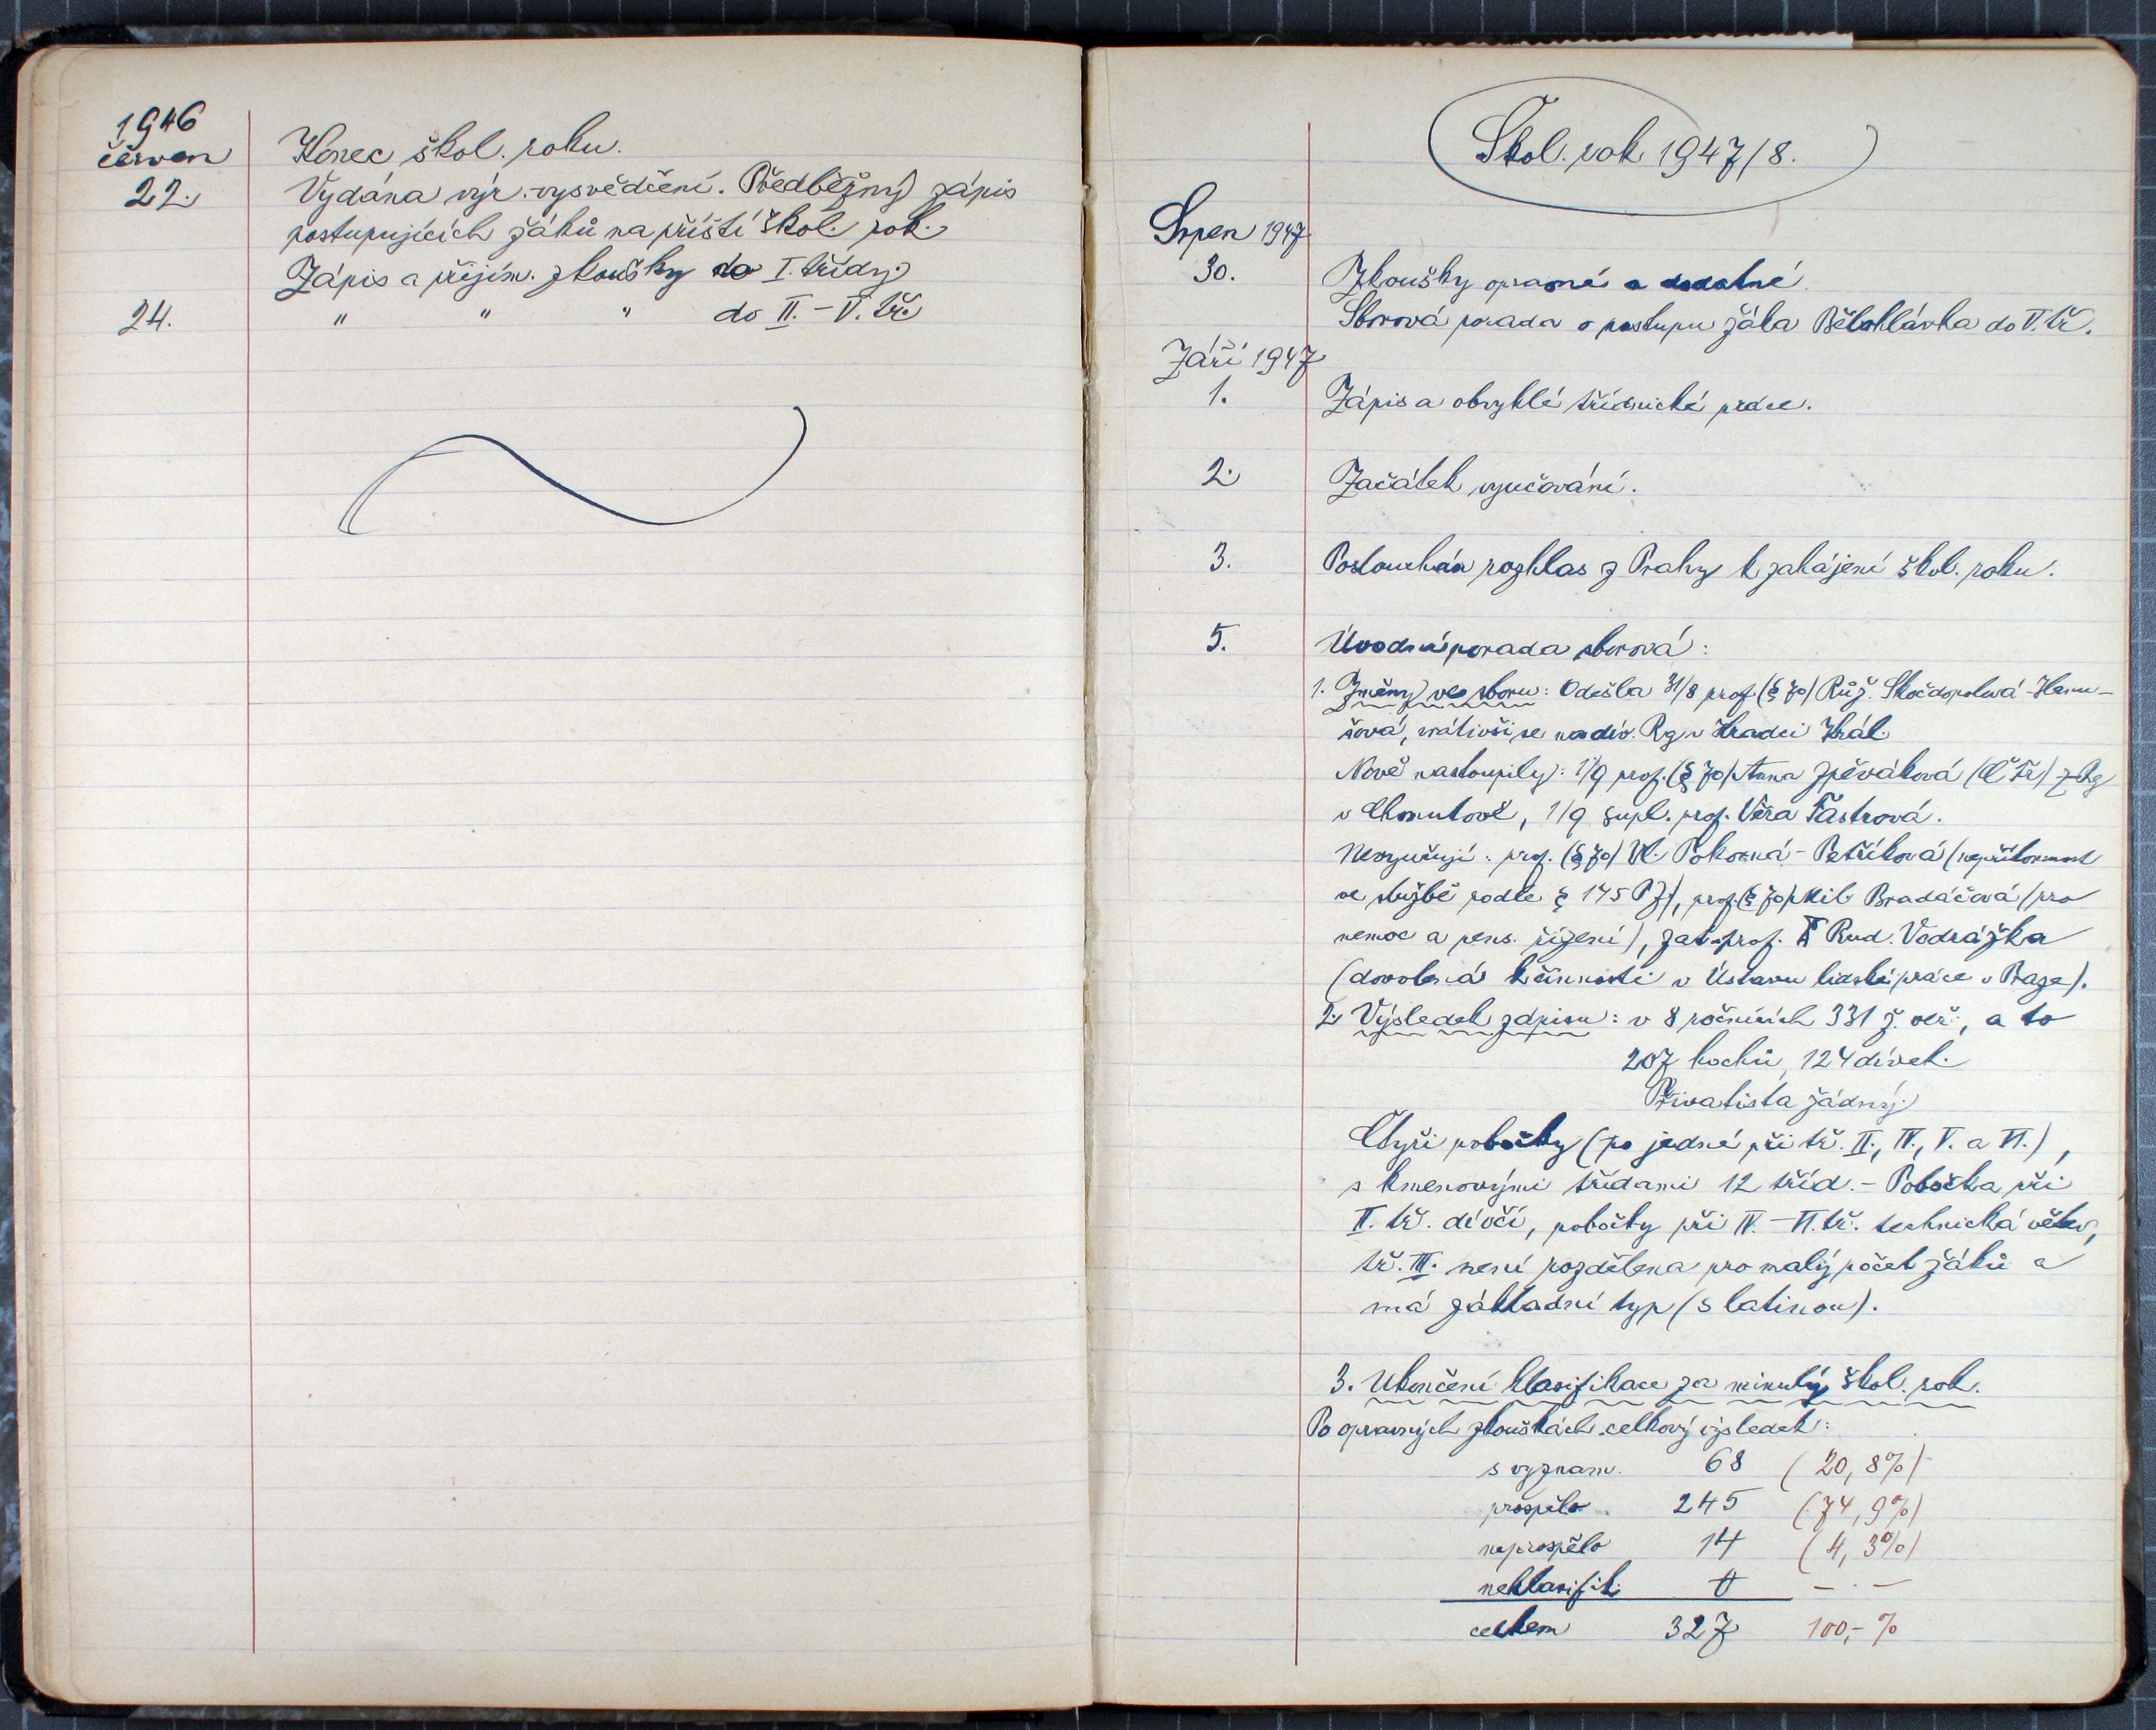 1946
červen
Konec škol. roku.
22. Vydána výr. vysvědčení. Předběžný zápis
postupujících žáků na příští škol. rok.
Zápis a přijím. zkoušky do I. třídy.
24. " " " do II. – V. tř.
Škol. rok 1947/8.
Srpen 1947
30. Zkoušky opravné a dodatné.
Sborová porada o postupu žáka Bělohlávka do V. tř.
Září 1947
1. Zápis a obvyklé třídnické práce.
2. Začátek vyučování.
3. Poslouchán rozhlas z Prahy k zahájení škol. roku.
5. Úvodní porada sborová:
1. Změny ve sboru: Odešla 31/8 prof. (§ 70) Růž. Skočdopolová - Hanu-
šová, vrátivši se na dív. Rg v Hradci Král.
Nově nastoupily: 1/9 prof. (§ 70) Anna Zpěváková (Č Fr) z Rg
v Chomutově, 1/9 supl. prof. Věra Fastrová.
Nevyučují: prof. (§ 70) Vl. Pokorná - Petříková (nepřítomnost
ve službě podle § 145 PZ), prof. (§ 70) Mil. Bradáčová (pro
nemoc a pens. řízení), zat. prof. Rud. Vodrážka
(dovolená k činnosti v Ústavu lidské práce v Praze).
2. Výsledek zápisu: v 8 ročnících 331 ž. veř., a to
207 hochů, 124 dívek.
Privatista žádný.
Čtyři pobočky (po jedné při tř. II., IV., V. a VI.),
s kmenovými třídami 12 tříd. – Pobočka při
II. tř. dívčí, pobočky při IV. – VI. tř. technická větev,
tř. III. není rozdělena pro malý počet žáků a
má základní typ (s latinou).
3. Ukončení klasifikace za minulý škol. rok.
Po opravných zkouškách celkový výsledek:
s vyznam. 68 (20,8%)
prospělo 245 (74,9%)
neprospělo 14 (4,3%)
neklasifik. 0 — . —
celkem 327 100,- %